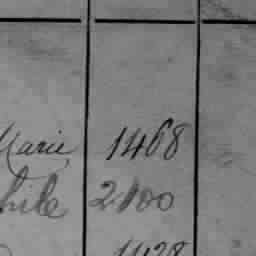 Marie 1468
hile 2100
1428